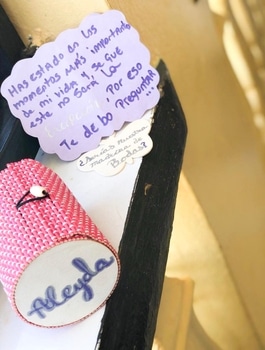 HAS ESTADO EN LOS
MOMENTOS MÁS importante
de mi vida y se que
este no SERÁ LA
EXCEPCIÓN, Por eso
Te debo Preguntar
madrina de
Bodas?
Aleyda